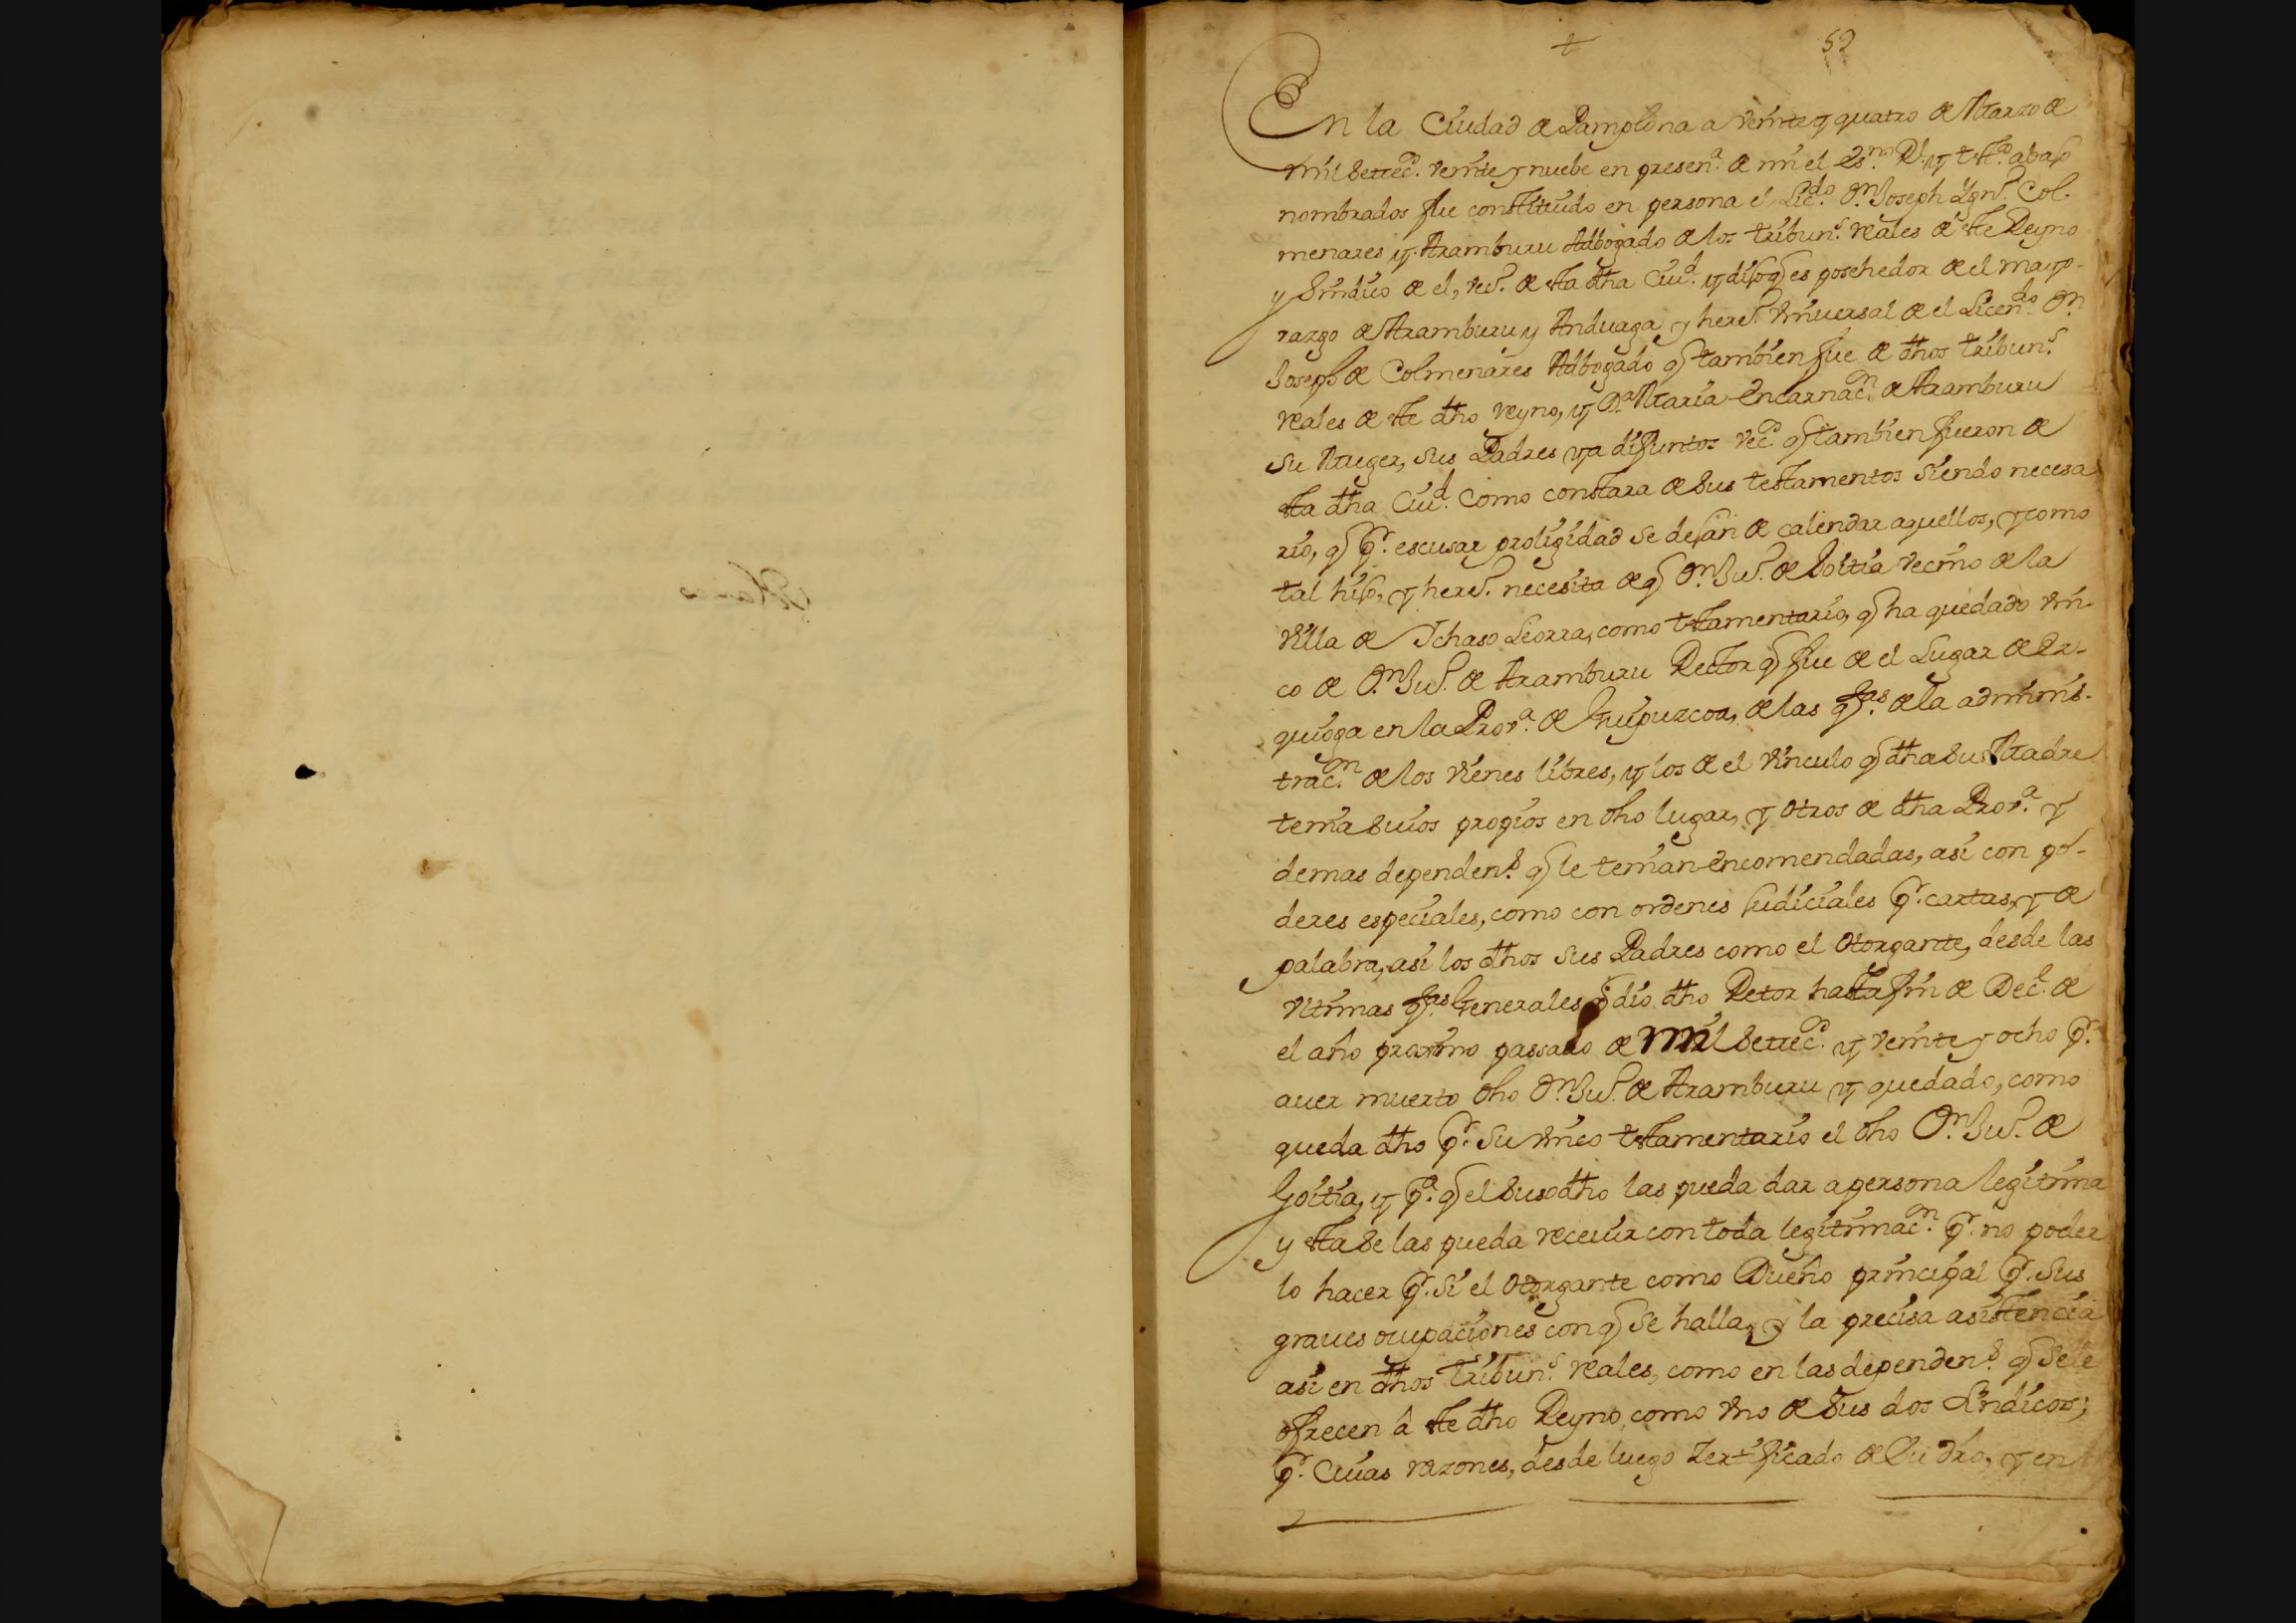 59
En la Ciudad de Pamplona a veinte y quatro de Marzo de
mil settec.s veinte y nuebe en presen.a de mi el es.no R.l y tt.os abajo
nombrados fue constituido en persona el Lic.do D.n Joseph Ygn.o Col-
menares y Aramburu Adbogado de los tribun.s reales de este Reyno
y Sindico de el, vec.o de esta dha Ciu.d y dijo q es posehedor de el mayo-
razgo de Aramburu y Anduaga, y hered.o vniuersal de el Licen.do D.n
Joseph de Colmenares Adbogado q tambien fue de dhos tribun.s
reales de este dho reyno, y D.a Maria Encarnac.n de Aramburu
su Muger, sus Padres ya difuntos vec.s q tambien fueron de
esta dha Ciu.d como constara de sus testamentos siendo necesa
rio, q p.r escusar proligidad se dejan de calendar aquellos, y como
tal hijo, y hered.o necesita de q D.n Ju.o de Goitia vecino de la
villa de Ichaso Leorra, como testamentario, q ha quedado vni-
co de D.n Ju.o de Aramburu Rector q fue de el Lugar de Ez-
quioga en la Prov.a de Guipuzcoa, de las q.tas de la adminis-
trac.n de los vienes libres, y los de el vinculo q dha su Madre
tenia suios propios en dho lugar, y otros de dha Prov.a y
demas dependen.s q le tenian encomendadas, asi con po-
deres especiales, como con ordenes judiciales p.r cartas, y de
palabra, asi los dhos sus Padres como el otorgante, desde las
vltimas q.tas Generales q dio dho Retor hasta fin de Dec.e de
el año proximo passado de mil settec.s y veinte y ocho p.r
auer muerto dho D.n Ju.o de Aramburu y quedado, como
queda dho p.r su vnico testamentario el dho D.n Ju.o de
Goitia, y p.a q el susodho las pueda dar a persona legitima
y esta se las pueda receuir con toda legitimac.n p.r no poder
lo hacer p.r si el otorgante como Dueño principal p.r sus
graues ocupaciones con q se halla, y la precisa asistencia
asi en dhos tribun.s reales, como en las dependen.s q se le
ofrecen â este dho Reyno, como vno de sus dos sindicos;
p.r Cuias razones, desde luego zertificado de su dro, y en